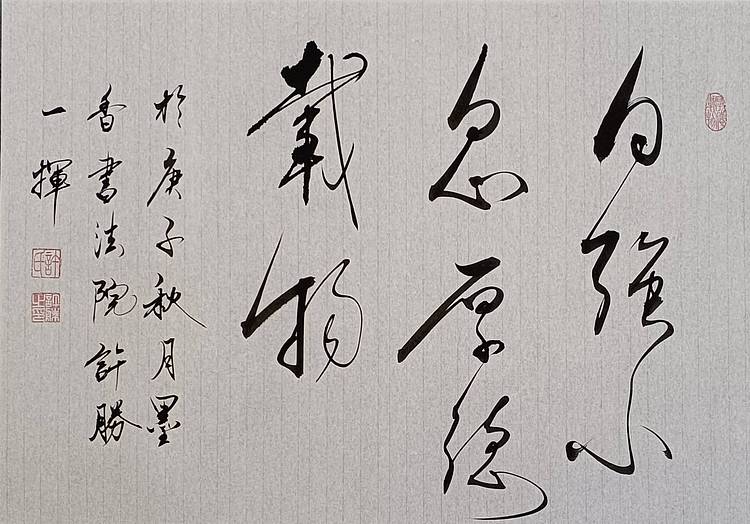 自强不
息厚德
載物
於庚子秋月墨
香書法院許勝
一揮